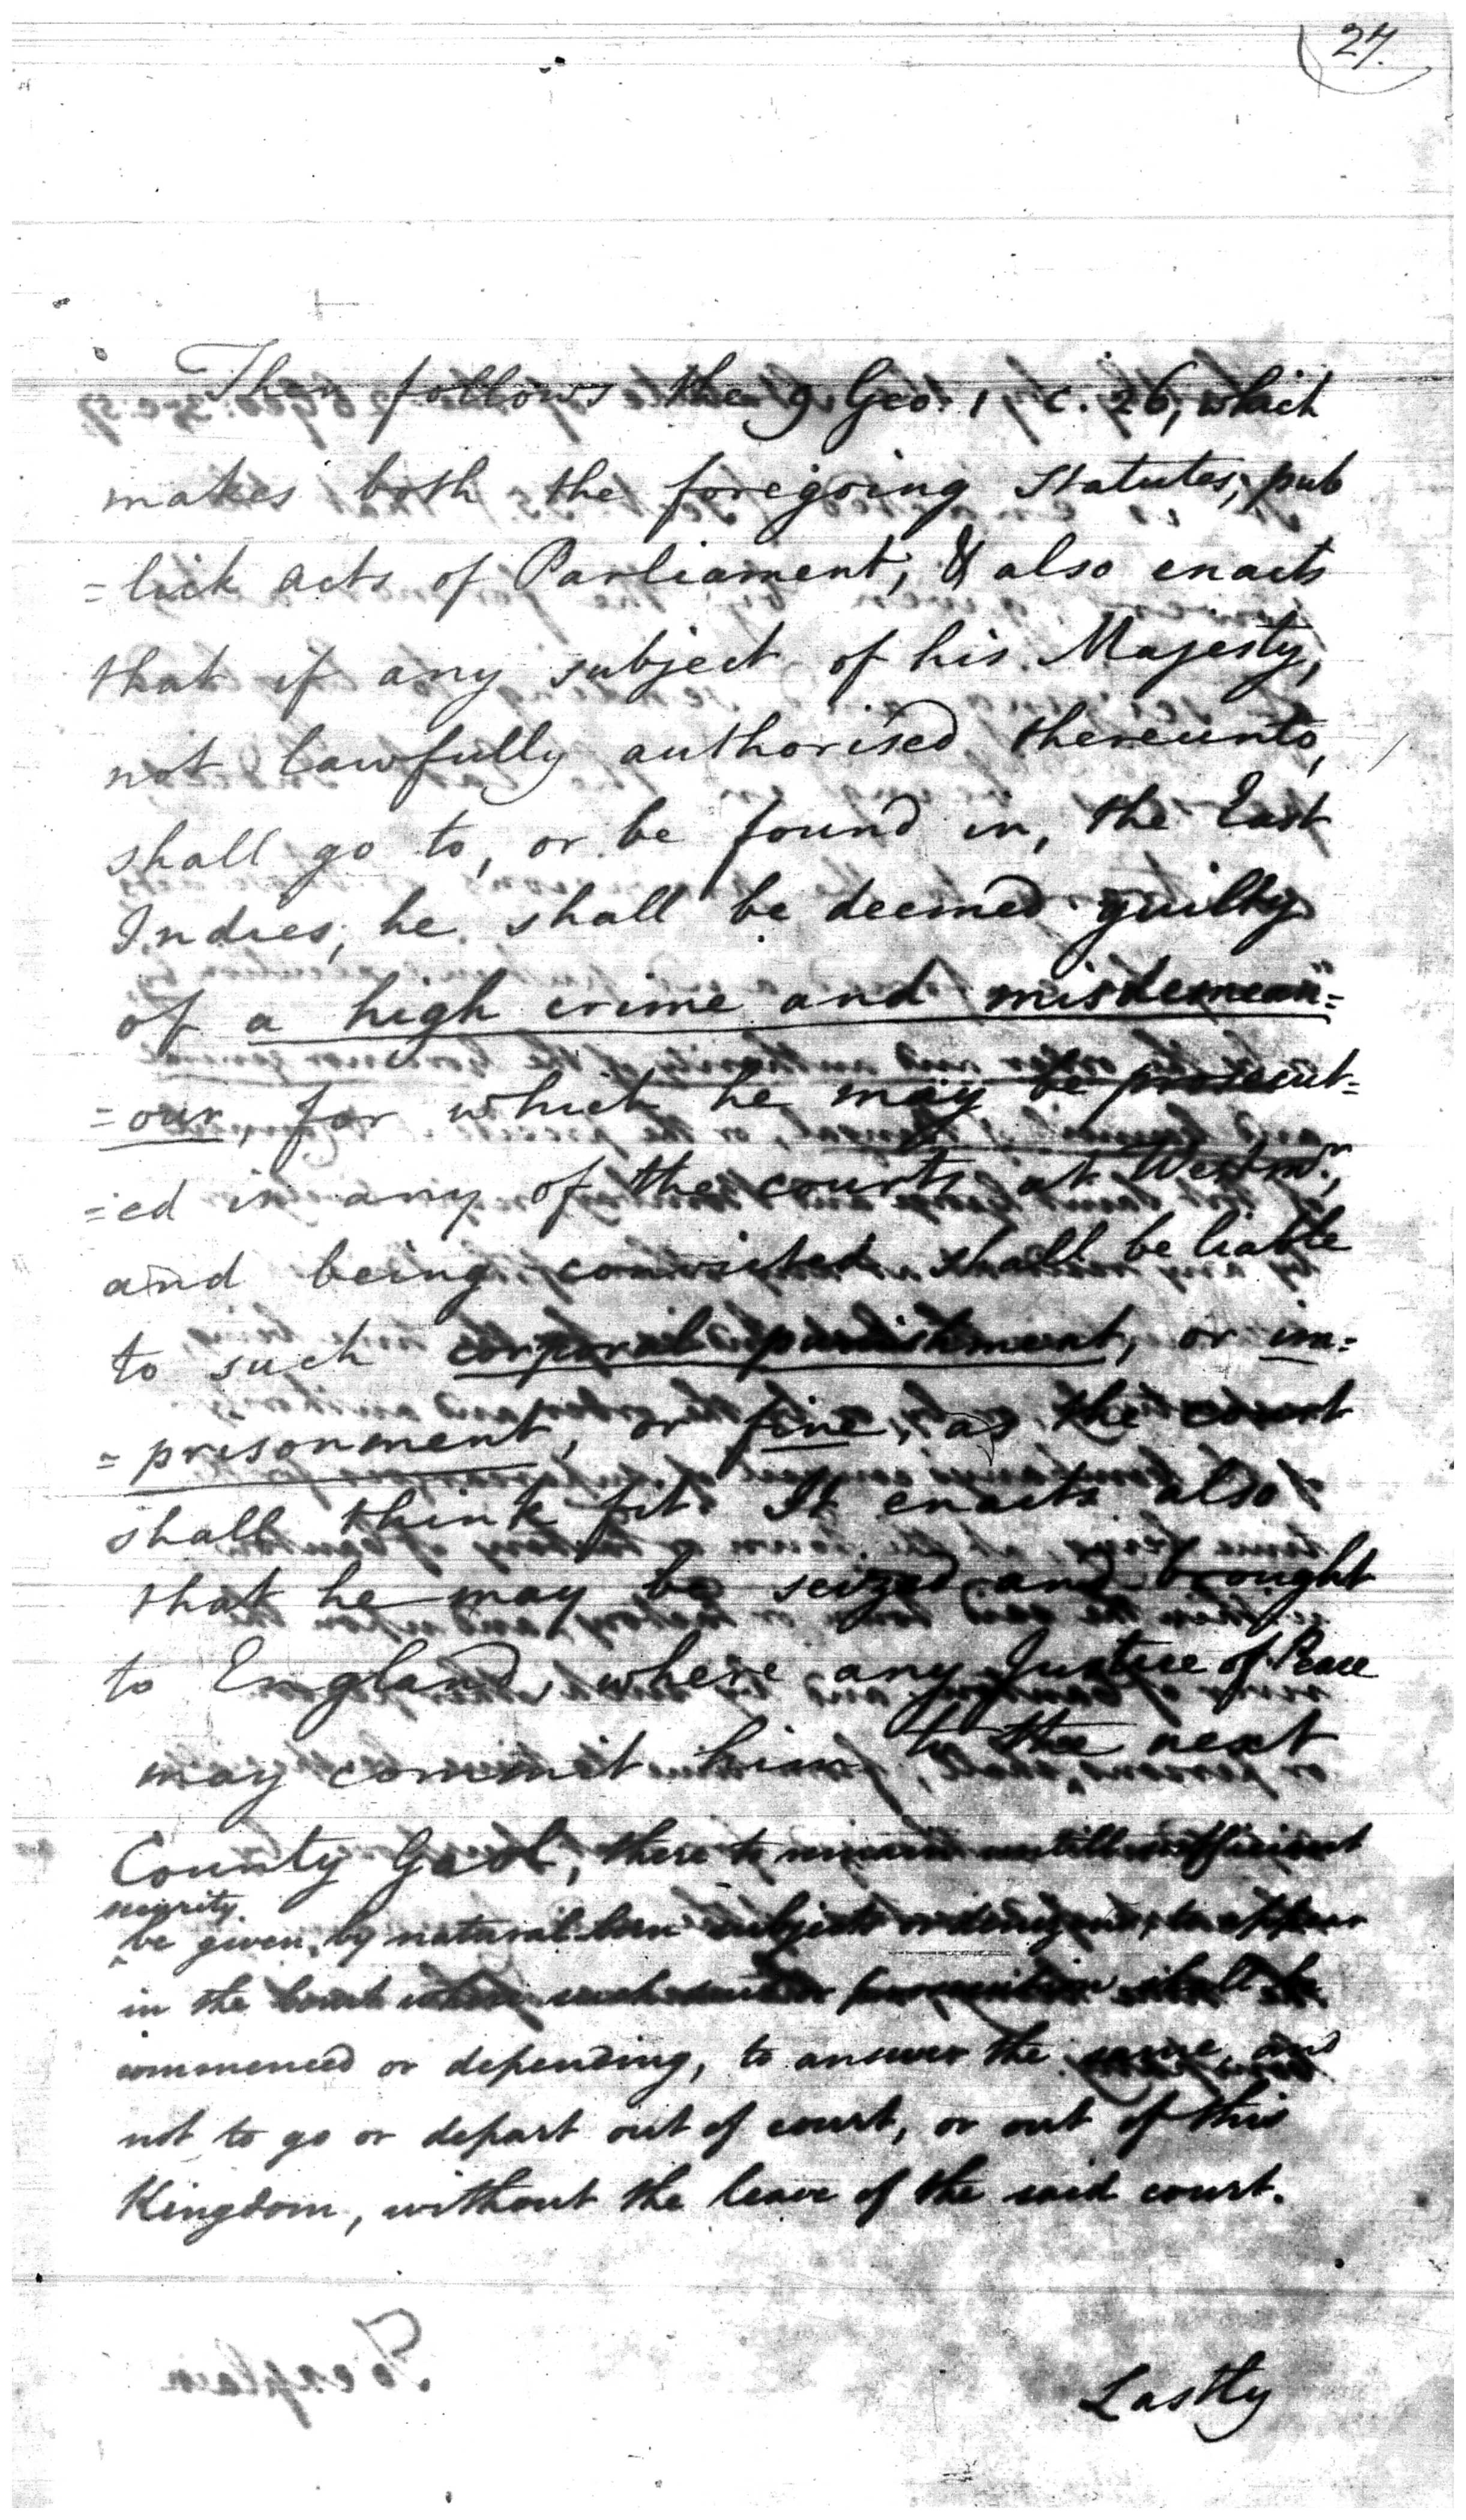 27.
Then follows the 9 Geo. 1 c. 26, which
makes both the foregoing statutes, pub
=lick acts of Parliament, & also enacts
that if any subject of his Majesty,
not lawfully authorised thereunto,
shall go to, or be found in, the East
Indies, he shall be deemed guilty
of a high crime and misdemean=
=our, for which he may be prosecut=
=ed in any of the courts at Westmr,
and being convicted shall be liable
to such corporal punishment, or im=
=prisonment, or fine, as the court
shall think fit. It enacts also
that he may be seized and brought
to England, where any Justice of Peace
may commit him to the next
County Gaol, there to remain untill sufficient
security
be given, by natural born subjects or denizens, to appear
in the Court where such suit or prosecution shall be
commenced or depending, to answer the same, and
not to go or depart out of court, or out of this
Kingdom, without the leave of the said court.
Lastly